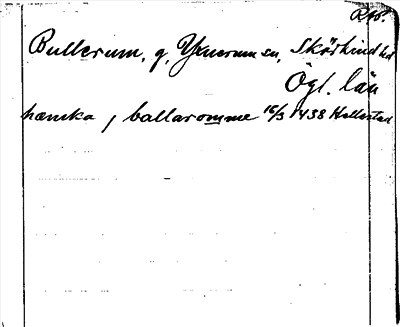 RAp.
Bullerum, g, Yxnerum sn, Skärkind hd
Ögl. län
hæmka / ballaromme 16/3 1438 Hallestad